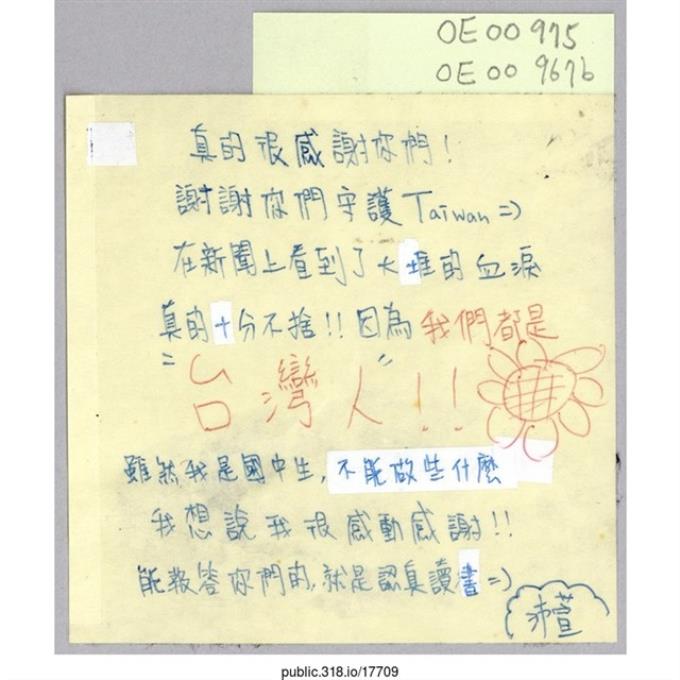 OE 00 975
OE 00 967b
真的很感謝你們！
謝謝你們守護Taiwan =)
在新聞上看到了大堆的血淚
真的十分不捨!! 因為我們都是
"台灣人!!"
雖然我是國中生，不能做些什麼
我想說我很感動感謝!!
能報答你們的，就是認真讀書 =)
萱
public.318.io/17709